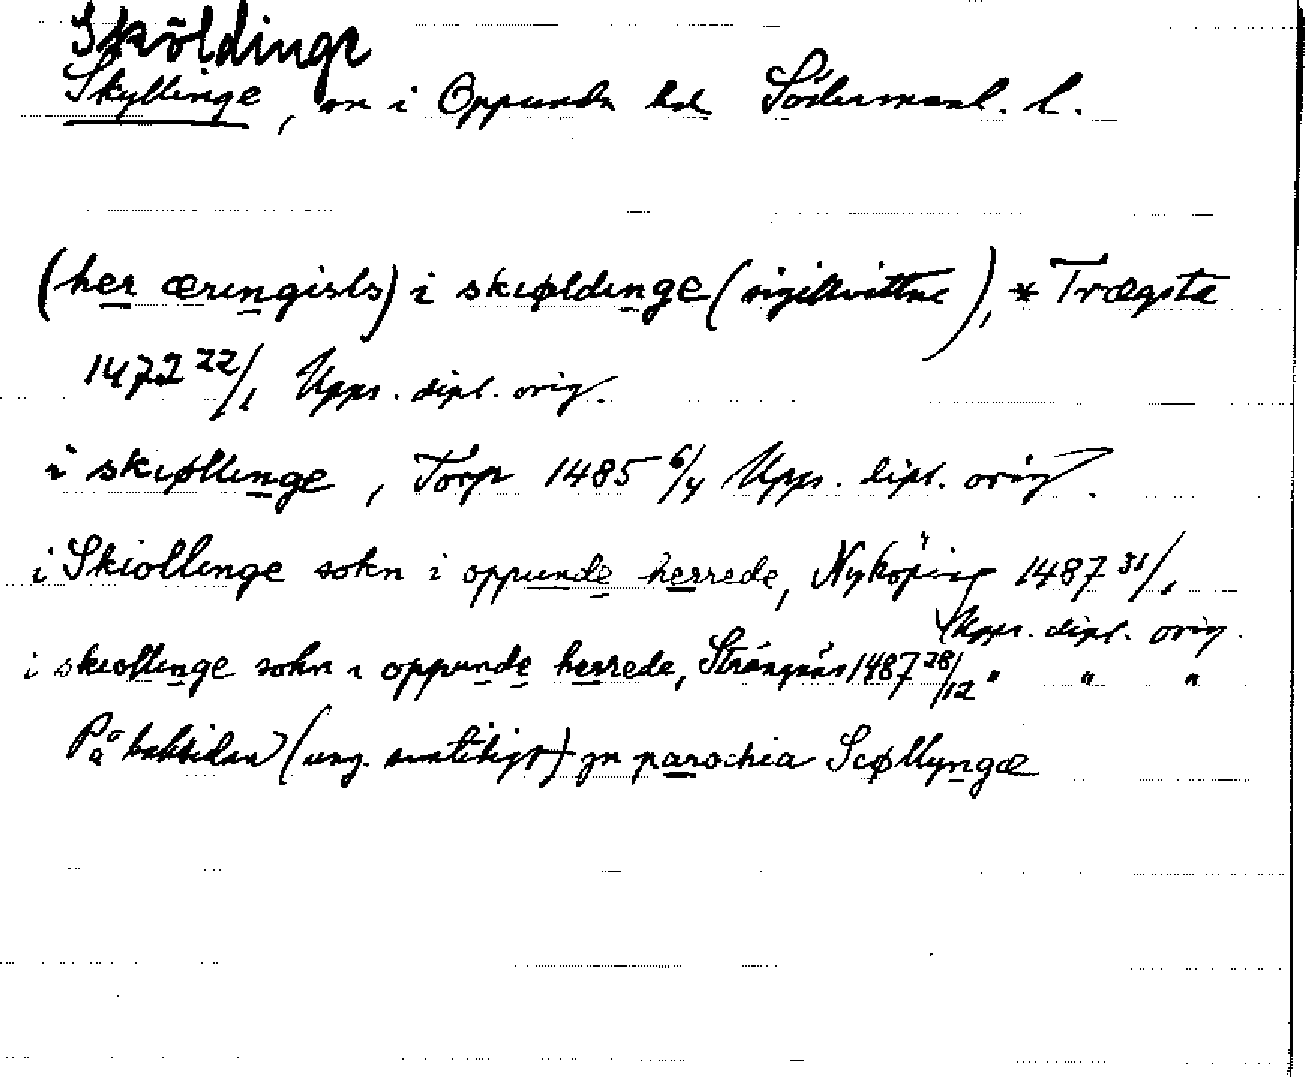 Sköldinge
Skyllinge, sn i Oppunda hd Södermanl. l.
(her ærengisls) i skiøldinge (sigillvittne), * Trægsta
1472 22/1 Upps. dipl. orig.
i skiøllinge, Torp 1485 6/4 Upps. dipl. orig.
i Skiollinge sokn i oppunde herrede, Nyköping 1487 31/1
Upps. dipl. orig.
i skiollinge sokn i oppunde herrede, Strängnäs 1487 28/12 " " "
På baksidan (ung. samtidigt) jn parochia Scøllyngæ